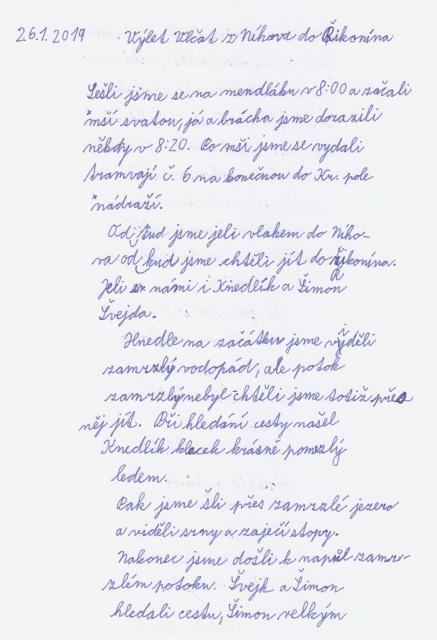 26.1.2019 Výlet Vlčat z Níhova do Řikonína
Sešli jsme se na mendláku v 8:00 a začali
mší svatou, já a brácha jsme dorazili
někdy v 8:20. Po mši jsme se vydali
tramvají č. 6 na konečnou do Kr. pole
nádraží.
Od tud jsme jeli vlakem do Ního-
va od kud jsme chtěli jít do Řikonína.
Jeli s námi i Knedlík a Šimon
Švejda.
Hnedle na začátku jsme viděli
zamrzlý vodopád, ale potok
zamrzlý nebyl chtěli jsme totiž přes
něj jít. Při hledání cesty našel
Knedlík klacek krásně pomrzlý
ledem.
Pak jsme šli přes zamrzlé jezero
a viděli srny a zaječí stopy.
Nakonec jsme došli k napůl zamr-
zlém potoku. Švejk a Šimon
hledali cestu, Šimon velkým